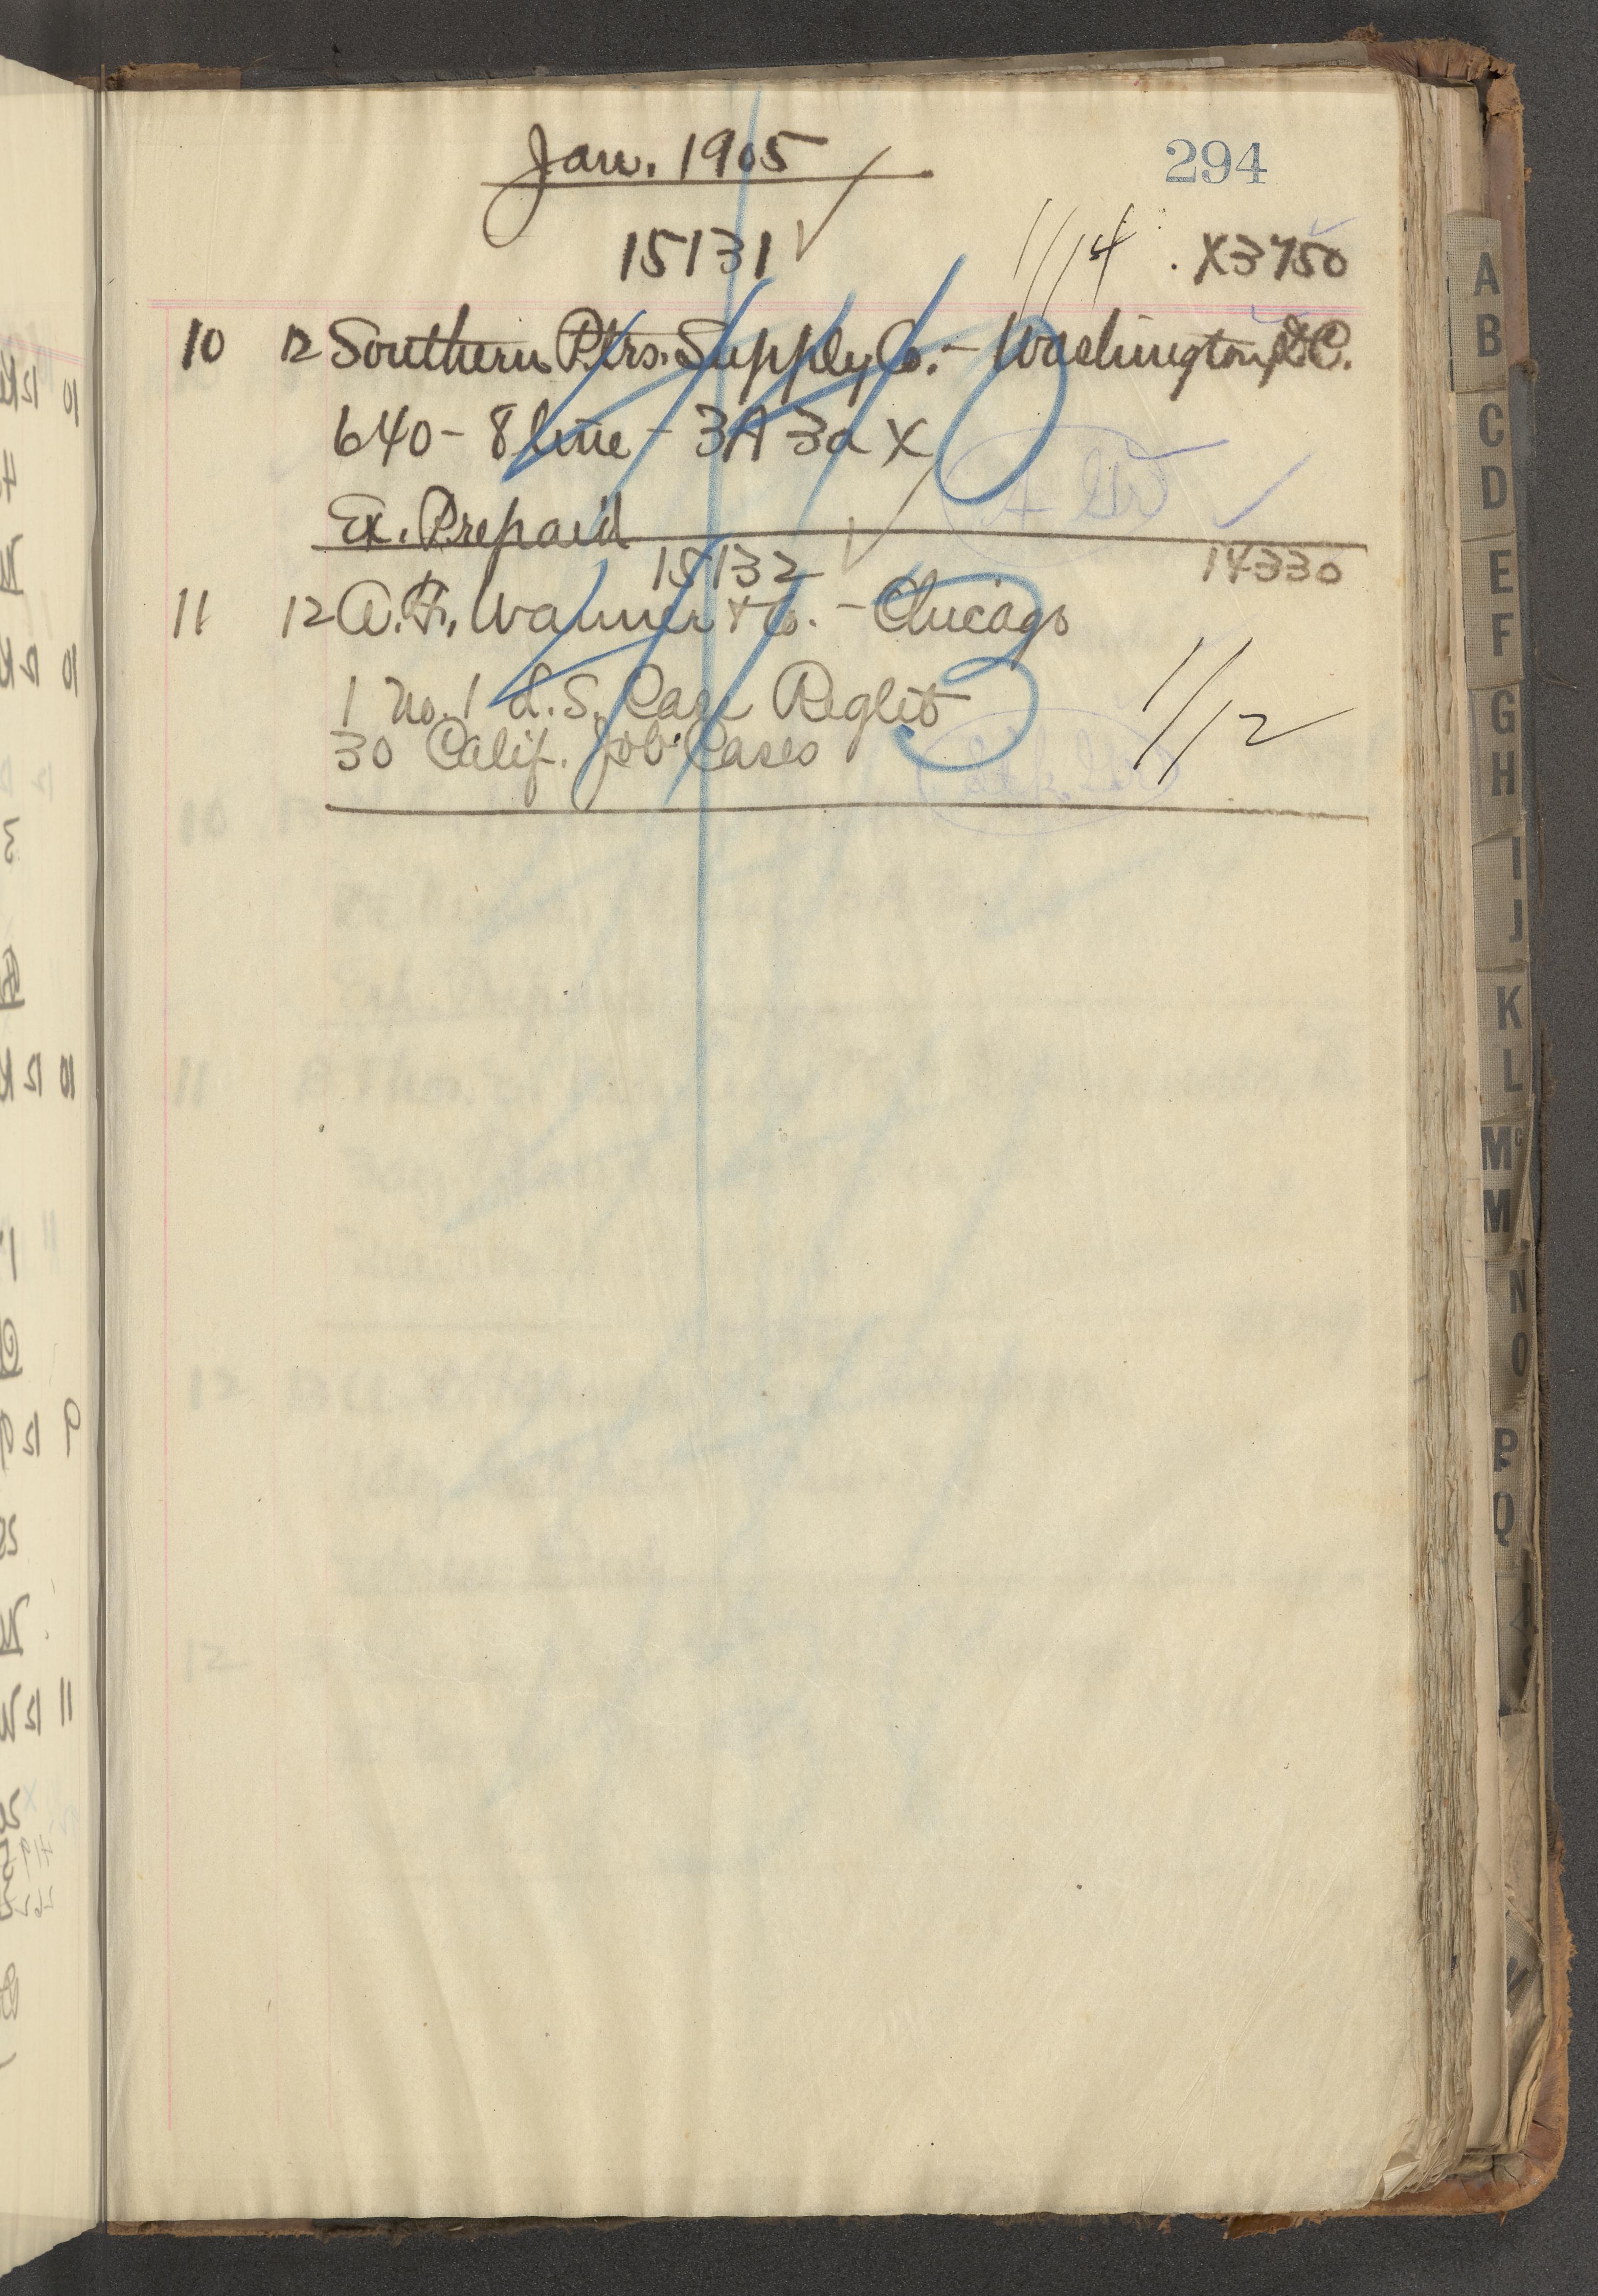 Jan. 1905
294
15131
1/14
X3750
10 12 Southern Ptrs. Supply Co. - Washington, D.C.
640 - 8 line - 3A 3a X
Ex. Prepaid
15132
14330
11 12 A.F. Wanner & Co. - Chicago
1 No. 1 L.S. Case Reglet
1/12
30 Calif. Job Cases
A
B
C
D
E
F
G
H
I
J
K
L
Mc
M
N
O
P
Q